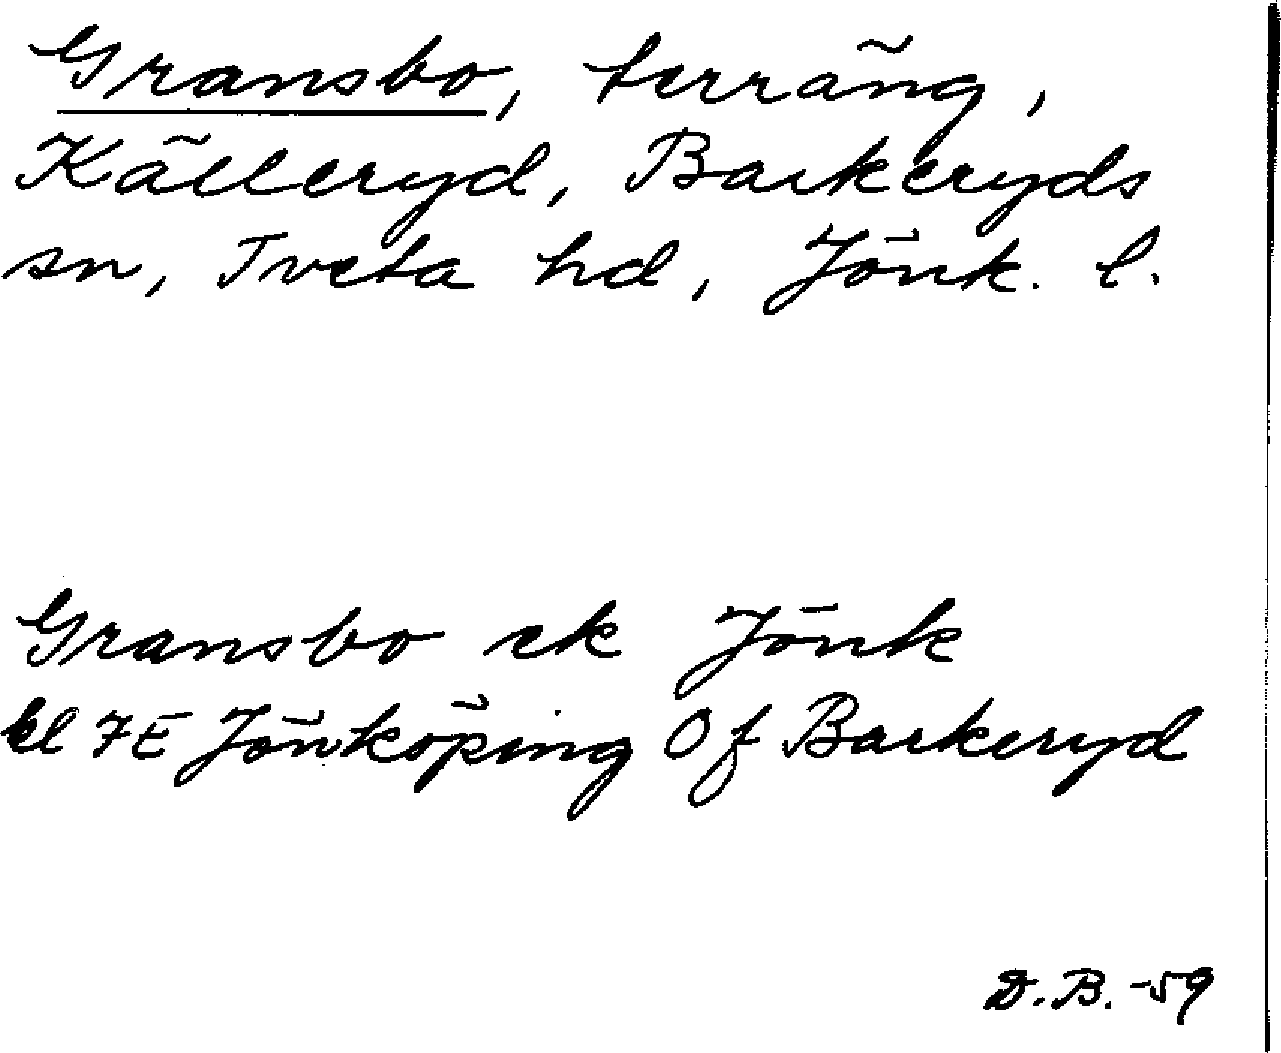 Gransbo, terräng,
Källeryd, Barkeryds
sn, Tveta hd, Jönk. l.
Gransbo ek Jönk
bl 7E Jönköping Of Barkeryd
D.B. -59